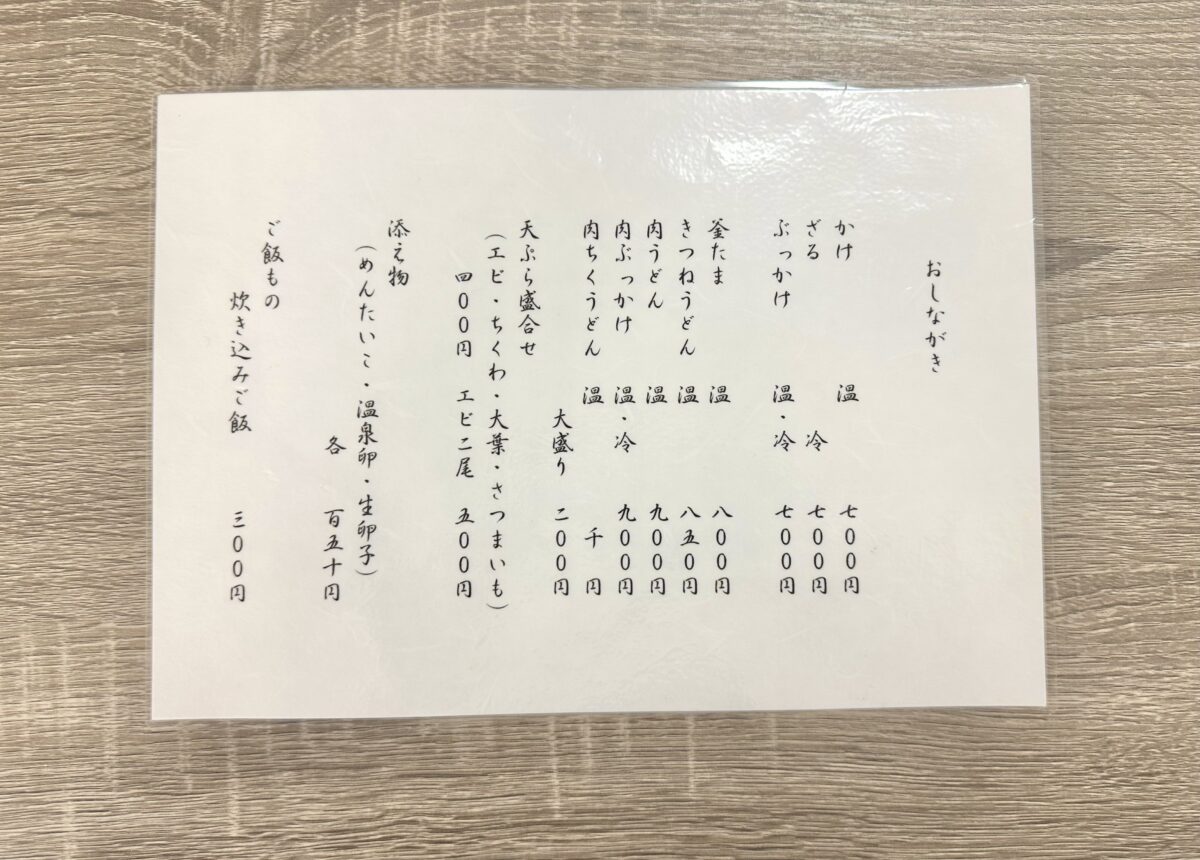 おしながき
かけ 温 七〇〇円
ざる 冷 七〇〇円
ぶっかけ 温・冷 七〇〇円
釜たま 温 八〇〇円
きつねうどん 温 八五〇円
肉うどん 温 九〇〇円
肉ぶっかけ 温・冷 九〇〇円
肉ちくうどん 温 千円
大盛り 二〇〇円
天ぷら盛合せ
(エビ・ちくわ・大葉・さつまいも)
四〇〇円 エビ二尾 五〇〇円
添え物
(めんたいこ・温泉卵・生卵子)
各 百五十円
ご飯もの
炊き込みご飯 三〇〇円